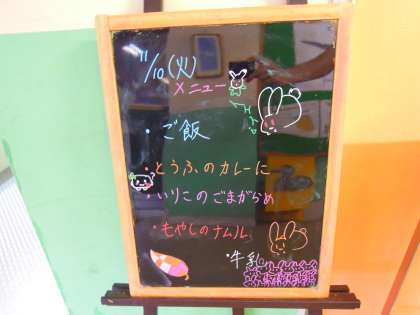 11/10(火)
メニュー
・ご飯
・とうふのカレーに
・いりこのごまがらめ
・もやしのナムル
・牛乳